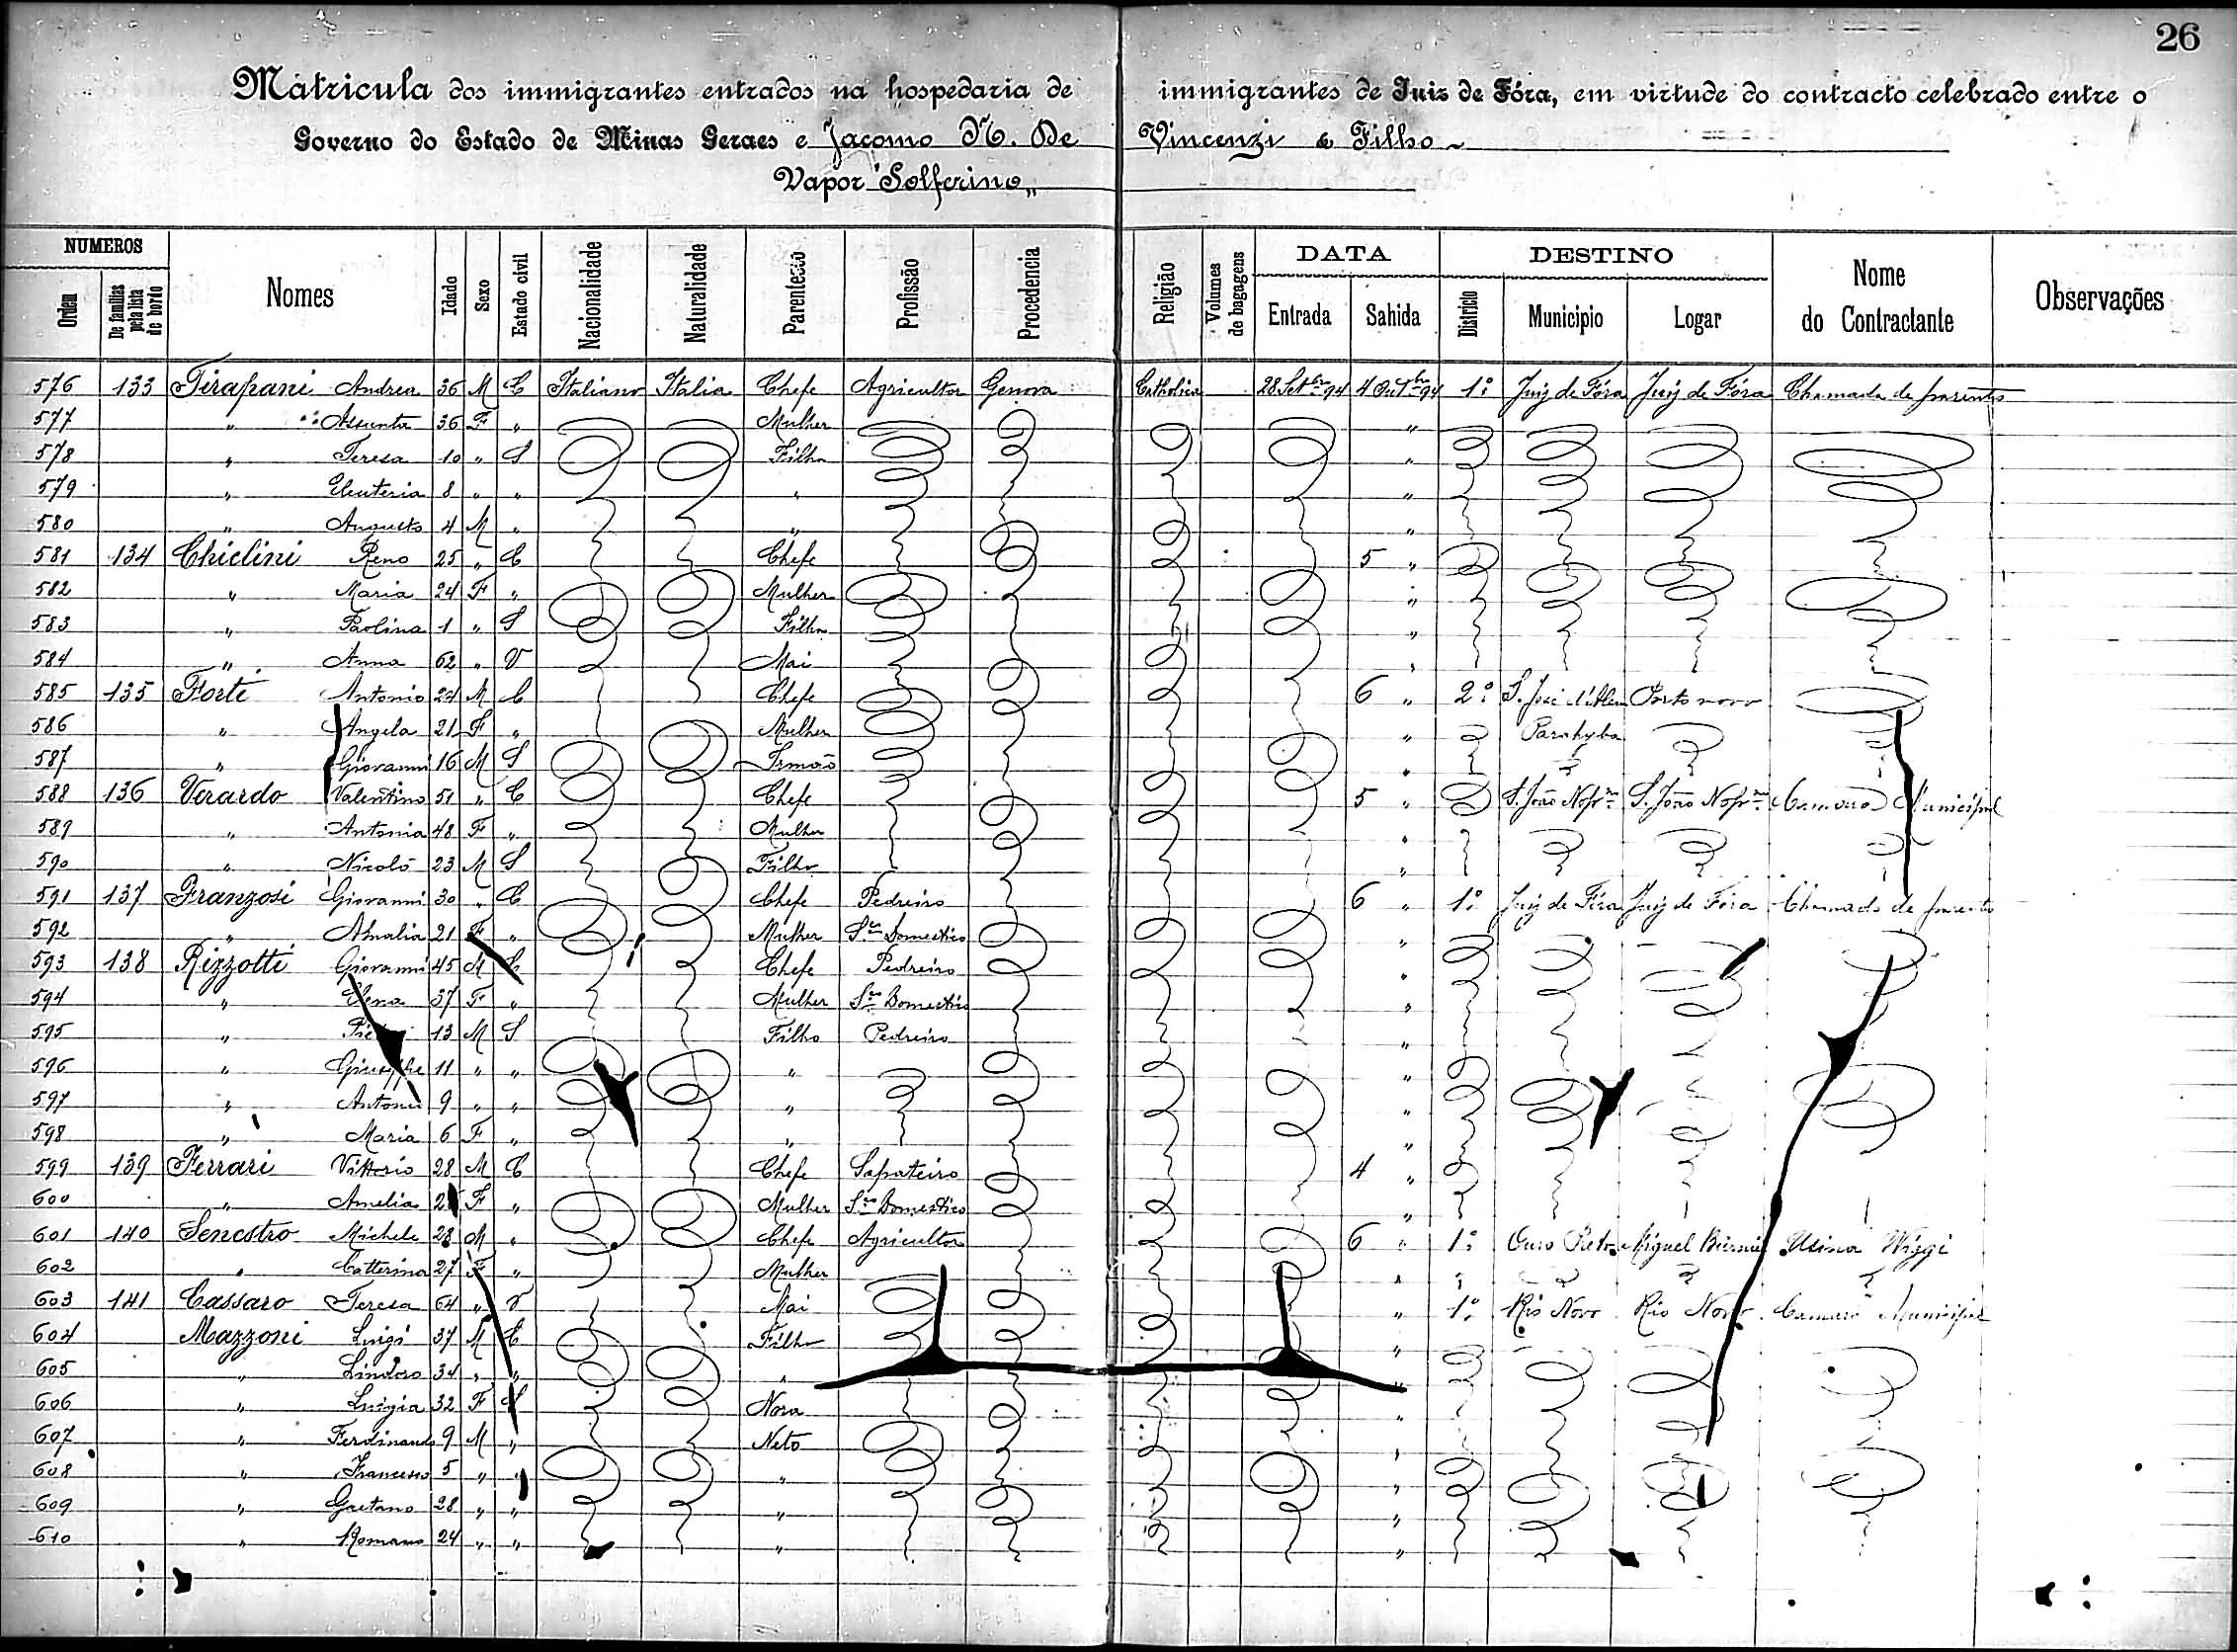 26
Matricula dos immigrantes entrados na hospedaria de immigrantes de Juiz de Fóra, em virtude do contracto celebrado entre o
Governo do Estado de Minas Geraes e Jacomo N. De Vincenzi & Filho
Vapor "Solferino"
NUMEROS DATA DESTINO
Ordem De familias pela lista de bordo Nomes Idade Sexo Estado civil Nacionalidade Naturalidade Parentesco Profissão Procedencia Religião Volumes de bagagens Entrada Sahida Districto Municipio Logar Nome do Contractante Observações
576 133 Tirapani Andrea 36 M C Italiano Italia Chefe Agricultor Genova Catholica 28 Setbro 94 4 Outbro 94 1º Juiz de Fóra Juiz de Fóra Chamada de parentes
577 " Assunta 36 F " Mulher "
578 " Teresa 10 " S Filha "
579 " Eleuteria 8 " " " "
580 " Augusto 4 M " " "
581 134 Chiclini Reno 25 " C Chefe 5 "
582 " Maria 24 F " Mulher "
583 " Paolina 1 " S Filha "
584 " Anna 62 " V Mai "
585 135 Forte Antonio 24 M C Chefe 6 " 2º S. José d'Alem Porto novo
586 " Angela 21 F " Mulher " Parahyba
587 " Giovanni 16 M S Irmão "
588 136 Verardo Valentino 51 " C Chefe 5 " S. João Nepno S. João Nepno Camara Municipal
589 " Antonia 48 F " Mulher "
590 " Nicolò 23 M S Filho "
591 137 Franzosi Giovanni 30 " C Chefe Pedreiro 6 " 1º Juiz de Fóra Juiz de Fóra Chamada de parentes
592 " Amalia 21 F " Mulher Sço Domestico "
593 138 Rizzotti Giovanni 45 M C Chefe Pedreiro "
594 " Elena 37 F " Mulher Sço Domestico "
595 " 13 M S Filho Pedreiro "
596 " Giuseppe 11 " " " "
597 " Antonio 9 " " " "
598 " Maria 6 F " " "
599 139 Ferrari Vittorio 28 M C Chefe Sapateiro 4 "
600 " Amelia F " Mulher Sço Domestico "
601 140 Senestro Michele 28 M " Chefe Agricultor 6 " 1º Ouro Preto Miguel Burnier Usina Wigg
602 " Catterina 27 F " Mulher "
603 141 Cassaro Teresa 64 " V Mai " 1º Rio Novo Rio Novo Camara Municipal
604 Mazzoni Luigi 37 M C Filho "
605 " Lindoro 34 " " " "
606 " Luigia 32 F S Nora "
607 " Ferdinando 9 M " Neto "
608 " Francesco 5 " " " "
609 " Gaetano 28 " " " "
610 " Romano 24 " " " "